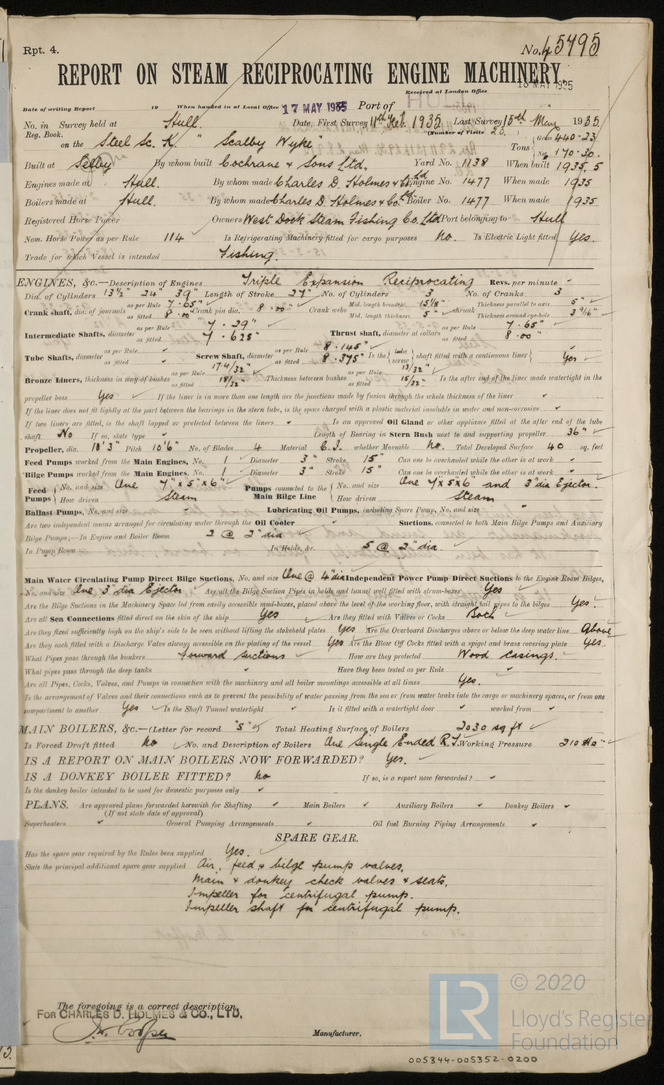 Rpt. 4.
No. 45795
REPORT ON STEAM RECIPROCATING ENGINE MACHINERY.
Received at London Office 18 MAY 1935
Date of writing Report 19 When handed in at Local Office 17 MAY 1935 Port of HULL
No. in Survey held at Hull. Date, First Survey 11th Feb. 1935 Last Survey 15th May 1935
Reg. Book. (Number of Visits 23.)
on the Steel Sc. K. "Scalby Wyke" Tons Gross 440.23 Net 170.30.
Built at Selby By whom built Cochrane & Sons Ltd. Yard No. 1138 When built 1935.5
Engines made at Hull. By whom made Charles D. Holmes & Co. Ltd Engine No. 1477 When made 1935
Boilers made at Hull. By whom made Charles D. Holmes & Co. Ltd Boiler No. 1477 When made 1935.
Registered Horse Power Owners West Dock Steam Fishing Co. Ltd Port belonging to Hull
Nom. Horse Power as per Rule 114 Is Refrigerating Machinery fitted for cargo purposes No. Is Electric Light fitted Yes.
Trade for which Vessel is intended Fishing.
ENGINES, &c.—Description of Engines Triple Expansion Reciprocating Revs. per minute
Dia. of Cylinders 13½" 24" 39" Length of Stroke 27" No. of Cylinders 3 No. of Cranks 3
Crank shaft, dia. of journals as per Rule 7.65 as fitted 8.00 Crank pin dia. 8.00 Crank webs Mid. length breadth 15⅛" Mid. length thickness 5" shrunk Thickness parallel to axis 5" Thickness around eye-hole 3 9/16"
Intermediate Shafts, diameter as per Rule 7.29" as fitted 7.625 Thrust shaft, diameter at collars as per Rule 7.65 as fitted 8.00
Tube Shafts, diameter as per Rule as fitted Screw Shaft, diameter as per Rule 8.145" as fitted 8.375 Is the tube screw shaft fitted with a continuous liner Yes
Bronze Liners, thickness in way of bushes as per Rule 17¼/32" as fitted 18/32" Thickness between bushes as per Rule 13/32" as fitted 15/32" Is the after end of the liner made watertight in the
propeller boss Yes If the liner is in more than one length are the junctions made by fusion through the whole thickness of the liner
If the liner does not fit tightly at the part between the bearings in the stern tube, is the space charged with a plastic material insoluble in water and non-corrosive
If two liners are fitted, is the shaft lapped or protected between the liners Is an approved Oil Gland or other appliance fitted at the after end of the tube
shaft No If so, state type Length of Bearing in Stern Bush next to and supporting propeller 36"
Propeller, dia. 10'3" Pitch 10'6" No. of Blades 4 Material C.I. whether Moveable No. Total Developed Surface 40 sq. feet
Feed Pumps worked from the Main Engines, No. 1 Diameter 3" Stroke 15" Can one be overhauled while the other is at work
Bilge Pumps worked from the Main Engines, No. 1 Diameter 3" Stroke 15" Can one be overhauled while the other is at work
Feed Pumps No. and size One 7"x5"x6" How driven Steam Pumps connected to the Main Bilge Line No. and size One 7"x5"x6" and 3" dia Ejector. How driven Steam
Ballast Pumps, No. and size Lubricating Oil Pumps, including Spare Pump, No. and size
Are two independent means arranged for circulating water through the Oil Cooler Suctions, connected to both Main Bilge Pumps and Auxiliary
Bilge Pumps;—In Engine and Boiler Room 3 @ 2" dia
In Pump Room In Holds, &c. 5 @ 2" dia.
Main Water Circulating Pump Direct Bilge Suctions, No. and size One @ 4" dia Independent Power Pump Direct Suctions to the Engine Room Bilges,
No. and size One 3" dia Ejector Are all the Bilge Suction Pipes in holds and tunnel well fitted with strum-boxes Yes
Are the Bilge Suctions in the Machinery Space led from easily accessible mud-boxes, placed above the level of the working floor, with straight tail pipes to the bilges Yes.
Are all Sea Connections fitted direct on the skin of the ship Yes Are they fitted with Valves or Cocks Both
Are they fixed sufficiently high on the ship's side to be seen without lifting the stokehold plates Yes Are the Overboard Discharges above or below the deep water line Above
Are they each fitted with a Discharge Valve always accessible on the plating of the vessel Yes Are the Blow Off Cocks fitted with a spigot and brass covering plate Yes.
What Pipes pass through the bunkers Forward suctions How are they protected Wood casings.
What pipes pass through the deep tanks Have they been tested as per Rule
Are all Pipes, Cocks, Valves, and Pumps in connection with the machinery and all boiler mountings accessible at all times Yes.
Is the arrangement of Valves and their connections such as to prevent the possibility of water passing from the sea or from water tanks into the cargo or machinery spaces, or from one
compartment to another Yes Is the Shaft Tunnel watertight Is it fitted with a watertight door worked from
MAIN BOILERS, &c.—(Letter for record "S") Total Heating Surface of Boilers 2030 sq ft
Is Forced Draft fitted No No. and Description of Boilers One Single Ended R.T. Working Pressure 210 lbs
IS A REPORT ON MAIN BOILERS NOW FORWARDED? Yes.
IS A DONKEY BOILER FITTED? No If so, is a report now forwarded?
Is the donkey boiler intended to be used for domestic purposes only
PLANS. Are approved plans forwarded herewith for Shafting Main Boilers Auxiliary Boilers Donkey Boilers
(If not state date of approval)
Superheaters General Pumping Arrangements Oil fuel Burning Piping Arrangements
SPARE GEAR.
Has the spare gear required by the Rules been supplied Yes.
State the principal additional spare gear supplied Air, feed & bilge pump valves.
Main & donkey check valves & seats.
Impeller for centrifugal pump.
Impeller shaft for centrifugal pump.
The foregoing is a correct description,
FOR CHARLES D. HOLMES & CO., LTD.
Manufacturer.
LR
© 2020
Lloyd's Register
Foundation
005344-005352-0200